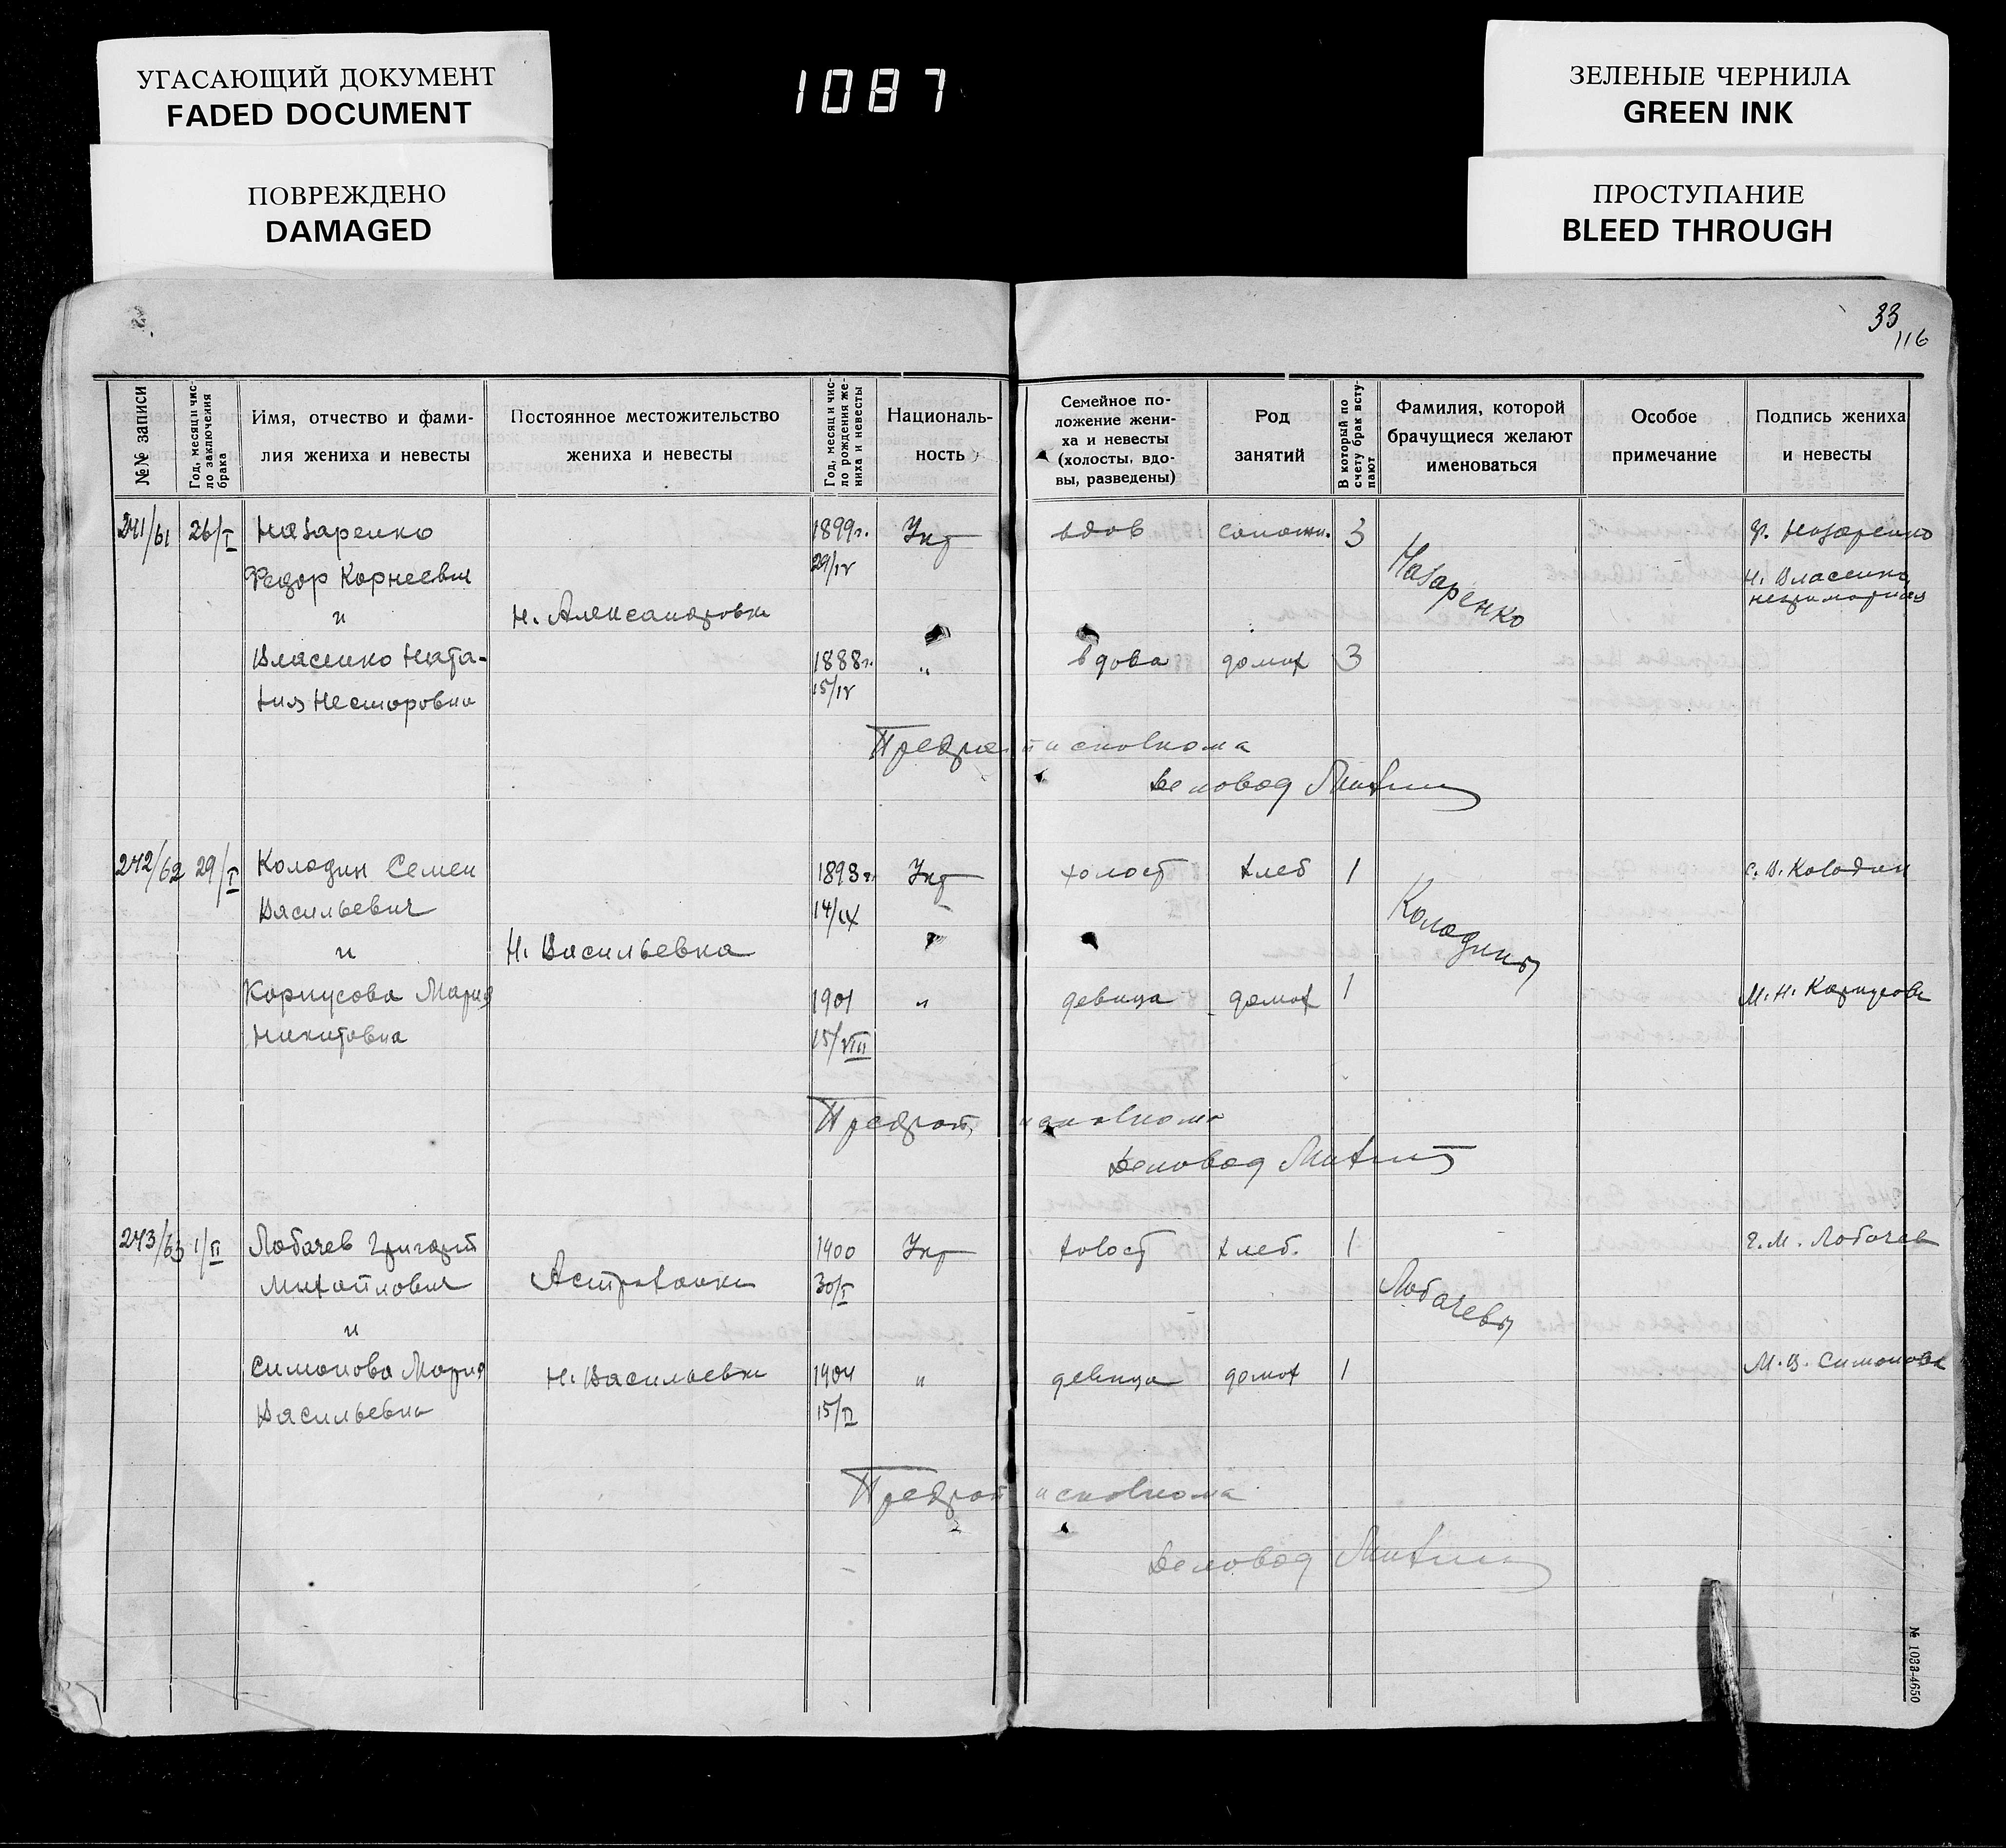 УГАСАЮЩИЙ ДОКУМЕНТ
FADED DOCUMENT
ПОВРЕЖДЕНО
DAMAGED
1087
ЗЕЛЕНЫЕ ЧЕРНИЛА
GREEN INK
ПРОСТУПАНИЕ
BLEED THROUGH
33
116
№№ записи
Год, месяц и чис-
ло заключения
брака
Имя, отчество и фами-
лия жениха и невесты
Постоянное местожительство
жениха и невесты
Год, месяц и чис-
ло рождения же-
ниха и невесты
Националь-
ность
Семейное по-
ложение жени-
ха и невесты
(холосты, вдо-
вы, разведены)
Род
занятий
В который по
счету брак всту-
пают
Фамилия, которой
брачущиеся желают
именоваться
Особое
примечание
Подпись жениха
и невесты
241/61 26/I Назаренко 1899г. Укр вдов сапожн. 3 Ф. Назаренко
Федор Корнеевич 29/IV Назаренко Н. Власенко
и Н. Александровка неграмотная
Власенко Ната- 1888г. " вдова домох 3
лия Несторовна 15/IV
Предрайисполкома
Деловод
242/62 29/I Колодин Семен 1893г. Укр холост хлеб 1 С. В. Колодин
Васильевич 14/IX Колодины
и Н. Васильевка
Корпусова Мария 1901 " девица домох 1 М. Н. Корпусова
Никитовна 15/VIII
Предрайисполкома
Деловод
243/63 1/II Лобачев Григорий 1900 Укр холост хлеб. 1 Г. М. Лобачев
Михайлович Астраханка 30/I Лобачевы
и
Симонова Мария Н. Васильевка 1904 " девица домох 1 М. В. Симонова
Васильевна 15/II
Предрайисполкома
Деловод
№ 1033-4650